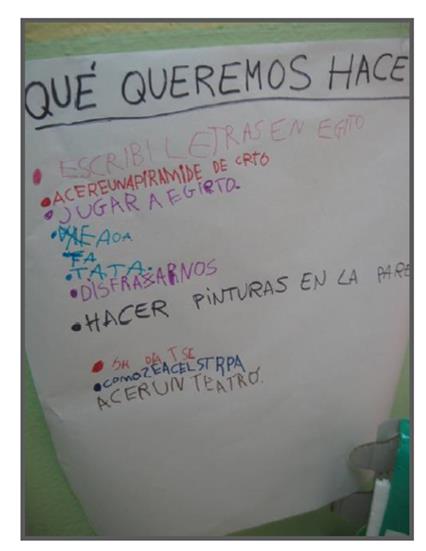 QUÉ QUEREMOS HACE
• ESCRIBI LETRAS EN EGITO
• ACEREUNAPIRAMIDE DE CRTO
• JUGAR A EGIPTO.
FA
• TATA.
• DISFRAZARNOS
• HACER PINTURAS EN LA PARE
• COMO2EACELSTRPA
ACERUN TEATRO.